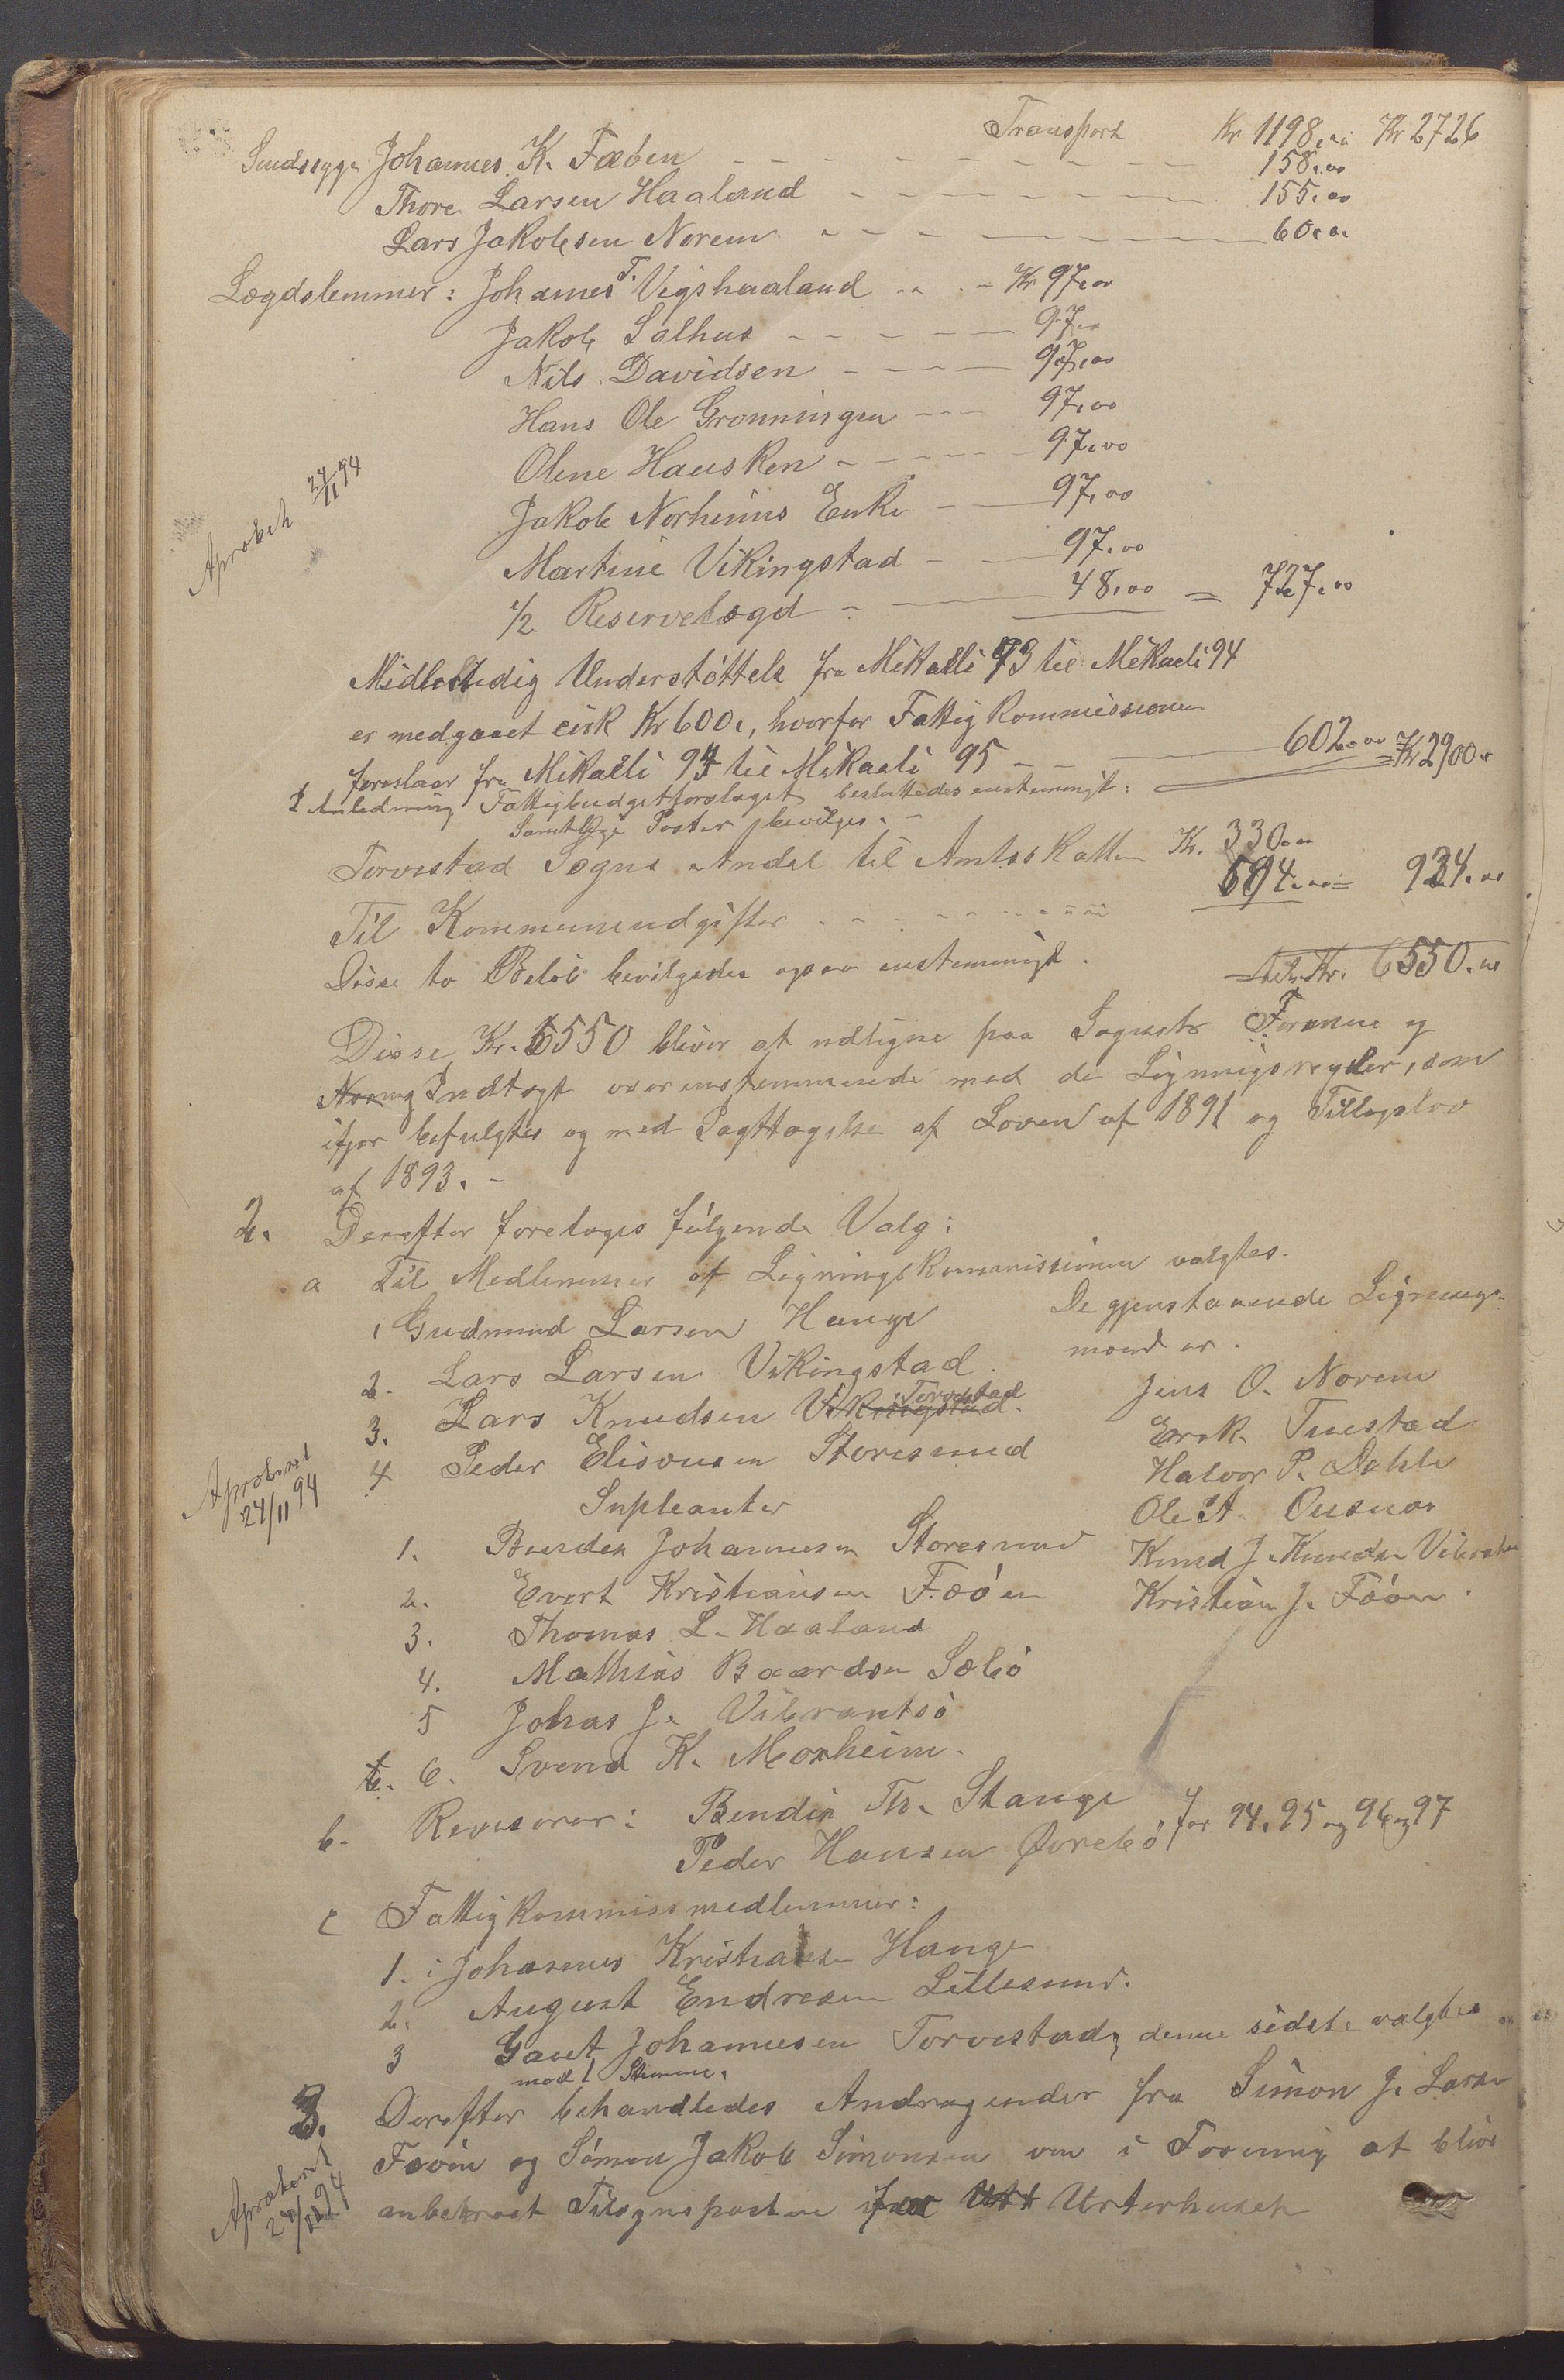 Transport Kr 1198,00 Kr 2726
Sindssyge Johannes K. Fæøen 158,00
Thore Larsen Haaland 155,00
Lars Jakobsen Norem 60,00
Lægdslemmer: Johannes T. Vigshaaland Kr 97,00
Jakob Salhus 97,00
Nils Davidsen 97,00
Hans Ole Grønningen 97,00
Olene Hausken 97,00
Jakob Norheims Enke 97,00
Martine Vikingstad 97,00
1/2 Reservelægd 48,00 = 727,00
Aprobert 24/11 94
Midlertidig Understøttelse fra Mikaeli 93 til Mikaeli 94
er medgaaet cirk Kr 600, hvorfor Fattigkommissionen
foreslaar fra Mikaeli 94 til Mikaeli 95 602,00 = Kr 2900,
I Anledning Fattigbudgetforslaget besluttedes enstemmigt:
Samtlige Poster bevilges. -
Torvestad Sogns Andel til Amtsskatten Kr. 330,00
Til Kommuneudgifter 594,00 = 924,00
Disse to Beløb bevilgedes ogsaa enstemmigt. Kr. 6550,00
Disse Kr. 6550 bliver at udligne paa Sognets Formue og
Indtægt overensstemmende med de Ligningsregler, som
ifjor befulgtes og med Iagttagelse af Loven af 1891 og Tillægslov
af 1893. -
2. Derefter foretoges følgende Valg:
a Til Medlemmer af Ligningskommissionen valgtes.
1 Gudmund Larsen Hauge
2. Lars Larsen Vikingstad.
3. Lars Knudsen Vikingstad. Torvestad
4 Peder Elisæusen Storesund
De gjenstaaende Lignings-
mænd er.
Jens O. Norem
Erik Tuestad
Halvor P. Dahle
Ole A. Ousnes
Knud J. Knudsen Vibrantsø
Kristian J. Fæøen.
Aproberet 24/11 94
Supleanter
1. Bendix Johannesen Storesund
2. Evert Kristiansen Fæøen
3. Thomas L. Haaland
4. Mathias Baardsen Sæbø
5 Johas J. Vibrantsø
6. Svend K. Mørheim.
b. Revisorer: Bendix Th. Stange
Peder Hansen Øvrebø for 94, 95 og 96 og 97
c Fattigkommissmedlemmer:
1. Johannes Kristiansen Hauge
2. August Endresen Lillesund.
3 Gaut Johannesen Torvestad, denne sidste valgtes
mod 1 Stemme.
3. Derefter behandledes Andragender fra Simon J. Larsen
Fæøen og Simon Jakob Simonsen om i Forening at blive
anbetroet Tilsynsposten Urterhuset
Aproberet 24/11 94